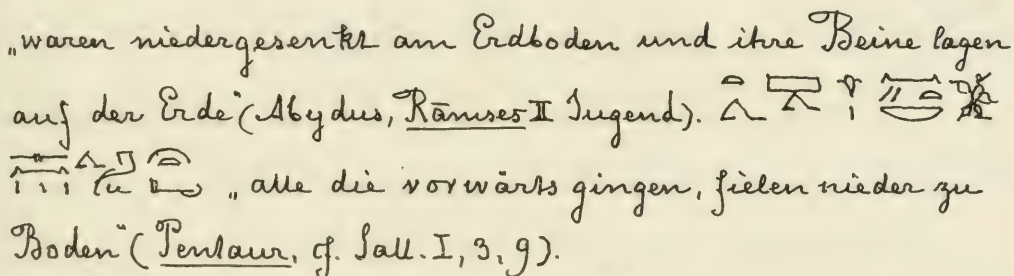 „waren niedergesenkt am Erdboden und ihre Beine lagen
auf der Erde“ (Abydus, Rāmses II Jugend).
„alle die vorwärts gingen, fielen nieder zu
Boden“ (Pentaur, cf. Sall. I, 3, 9).